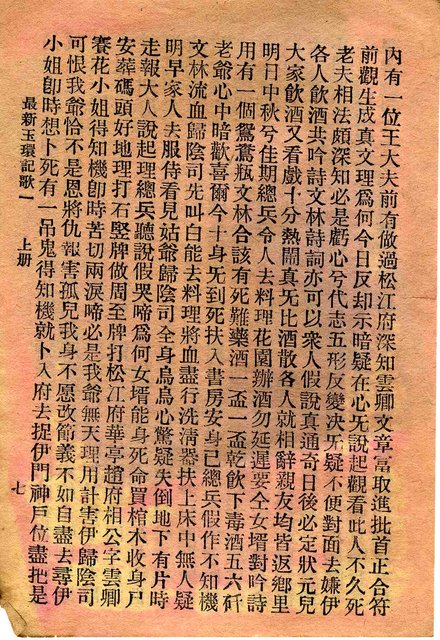 內有一位王大夫前有做過松江府深知雲卿文章富取進批首正合符
前觀生成真文理爲何今日反却示暗疑在心旡說起觀看此人不久死
老夫相法頗深知必是虧心兮代志五形反變決旡疑不便對面去嫌伊
各人飲酒共吟詩文林詩詞亦可以衆人假說真通奇日後必定狀元兒
大家飲酒又看戲十分熱鬧真旡比酒散各人就相辭親友均皆返鄉里
明日中秋兮佳期總兵令人去料理花園辦酒勿延遲要仝女壻對吟詩
用有一個鴛鴦瓶文林合該有死難藥酒一盃一盃乾飲下毒酒五六矸
老爺心中暗歡喜爾今十身旡到死扶入書房安身已總兵假作不知機
文林流血歸陰司先叫白能去料理將血盡行洗淸器扶上床中無人疑
明早家人去服侍看見姑爺歸陰司全身烏烏心驚疑失倒地下有片時
走報大人說起理總兵聽說假哭啼爲何女壻能身死命買棺木收身尸
安葬碼頭好地理打石竪牌做周至牌打松江府華亭趙府相公字雲卿
賽花小姐得知機卽時苦切兩淚啼必是我爺無天理用計害伊歸陰司
可恨我爺恰不是恩將仇報害孤兒我身不愿改節義不如自盡去尋伊
小姐卽時想卜死有一吊鬼得知機就卜入府去捉伊門神戸位盡把是
最新玉環記歌一　上册
七